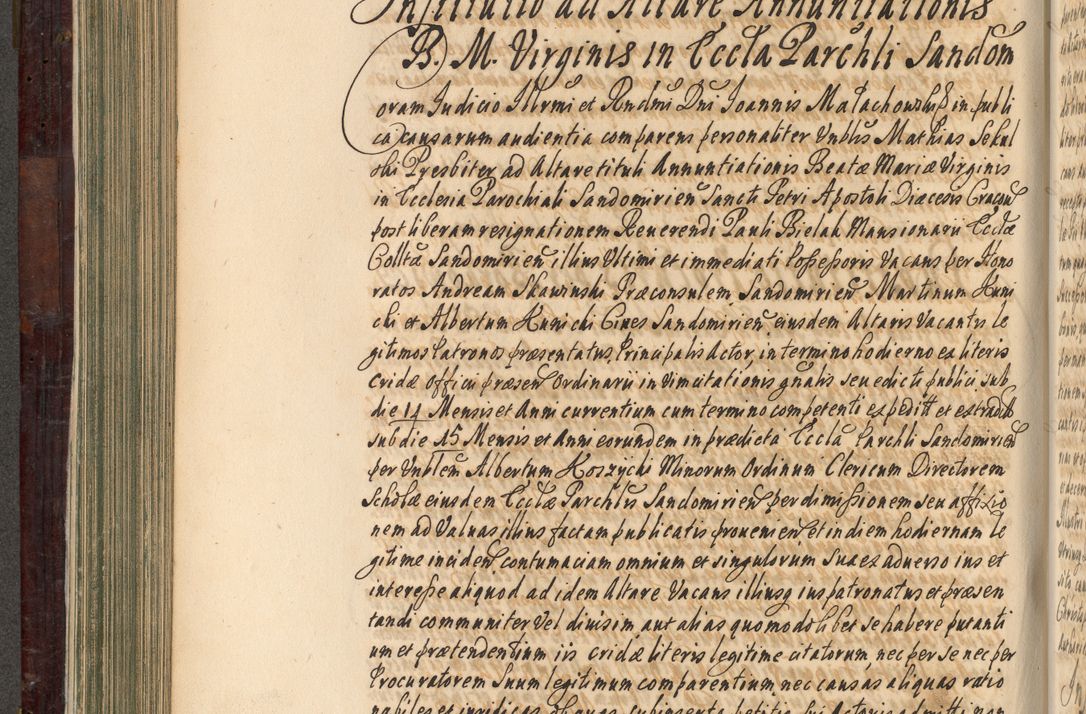 Institutio ad Altare Annuntiationis
B. M. Virginis in Eccla Parchli Sandom
Coram Judicio Illrmi et Rndmi Dni Joannis Małachowski in publi
ca causarum audientia comparens personaliter Vnblis Mathias Sekul
ski Presbiter ad Altare tituli Annuntiationis Beatæ Mariæ Virginis
in Ecclesia Parochiali Sandomirien Sancti Petri Apostoli Diæcesis Cracoun
post liberam resignationem Reuerendi Pauli Bielak Mansionarii Ecclæ
Colltæ Sandomirien illius Vltimi et immediati Possessoris Vacans per Hono
ratos Andream Skawinski Præconsulem Sandomirien Martinum Huni
cki et Albertum Hunicki Ciues Sandomirien eiusdem Altaris Vacantis le
gitimos Patronos præsentatus, Principalis Actor, in termino hodierno ex literis
Cridæ officii præsen Ordinarii in Vim citationis gnalis seu edicti publici sub
die 14 Mensis et Anni currentium cum termino competenti expeditt et extradit
sub die 15 Mensis et Anni eorundem in prædicta Eccla Parchli Sandomirien
per Vnblem Albertum Koszycki Minorum Ordinum Clericum Directorem
Scholæ eiusdem Ecclæ Parchlis Sandomirien per dimissionem seu affixio
nem ad Valuas illius factam publicatis prouenien et in diem hodiernam le
gitime inciden contumaciam omnium et singulorum sua ex aduerso ius et
interesse aliquod ad idem Altare Vacans illiusq ius patronatus et præsen
tandi communiter vel diuisim aut alias quomodolibet se habere putanti
um et prætendentium iis cridæ literis legitime citatorum, nec per se nec per
Procuratorem Suum legitimum comparentium, nec causas aliquas ratio
nabiles et iuridicas obquas subinserta petitio sui Actoris admitti non